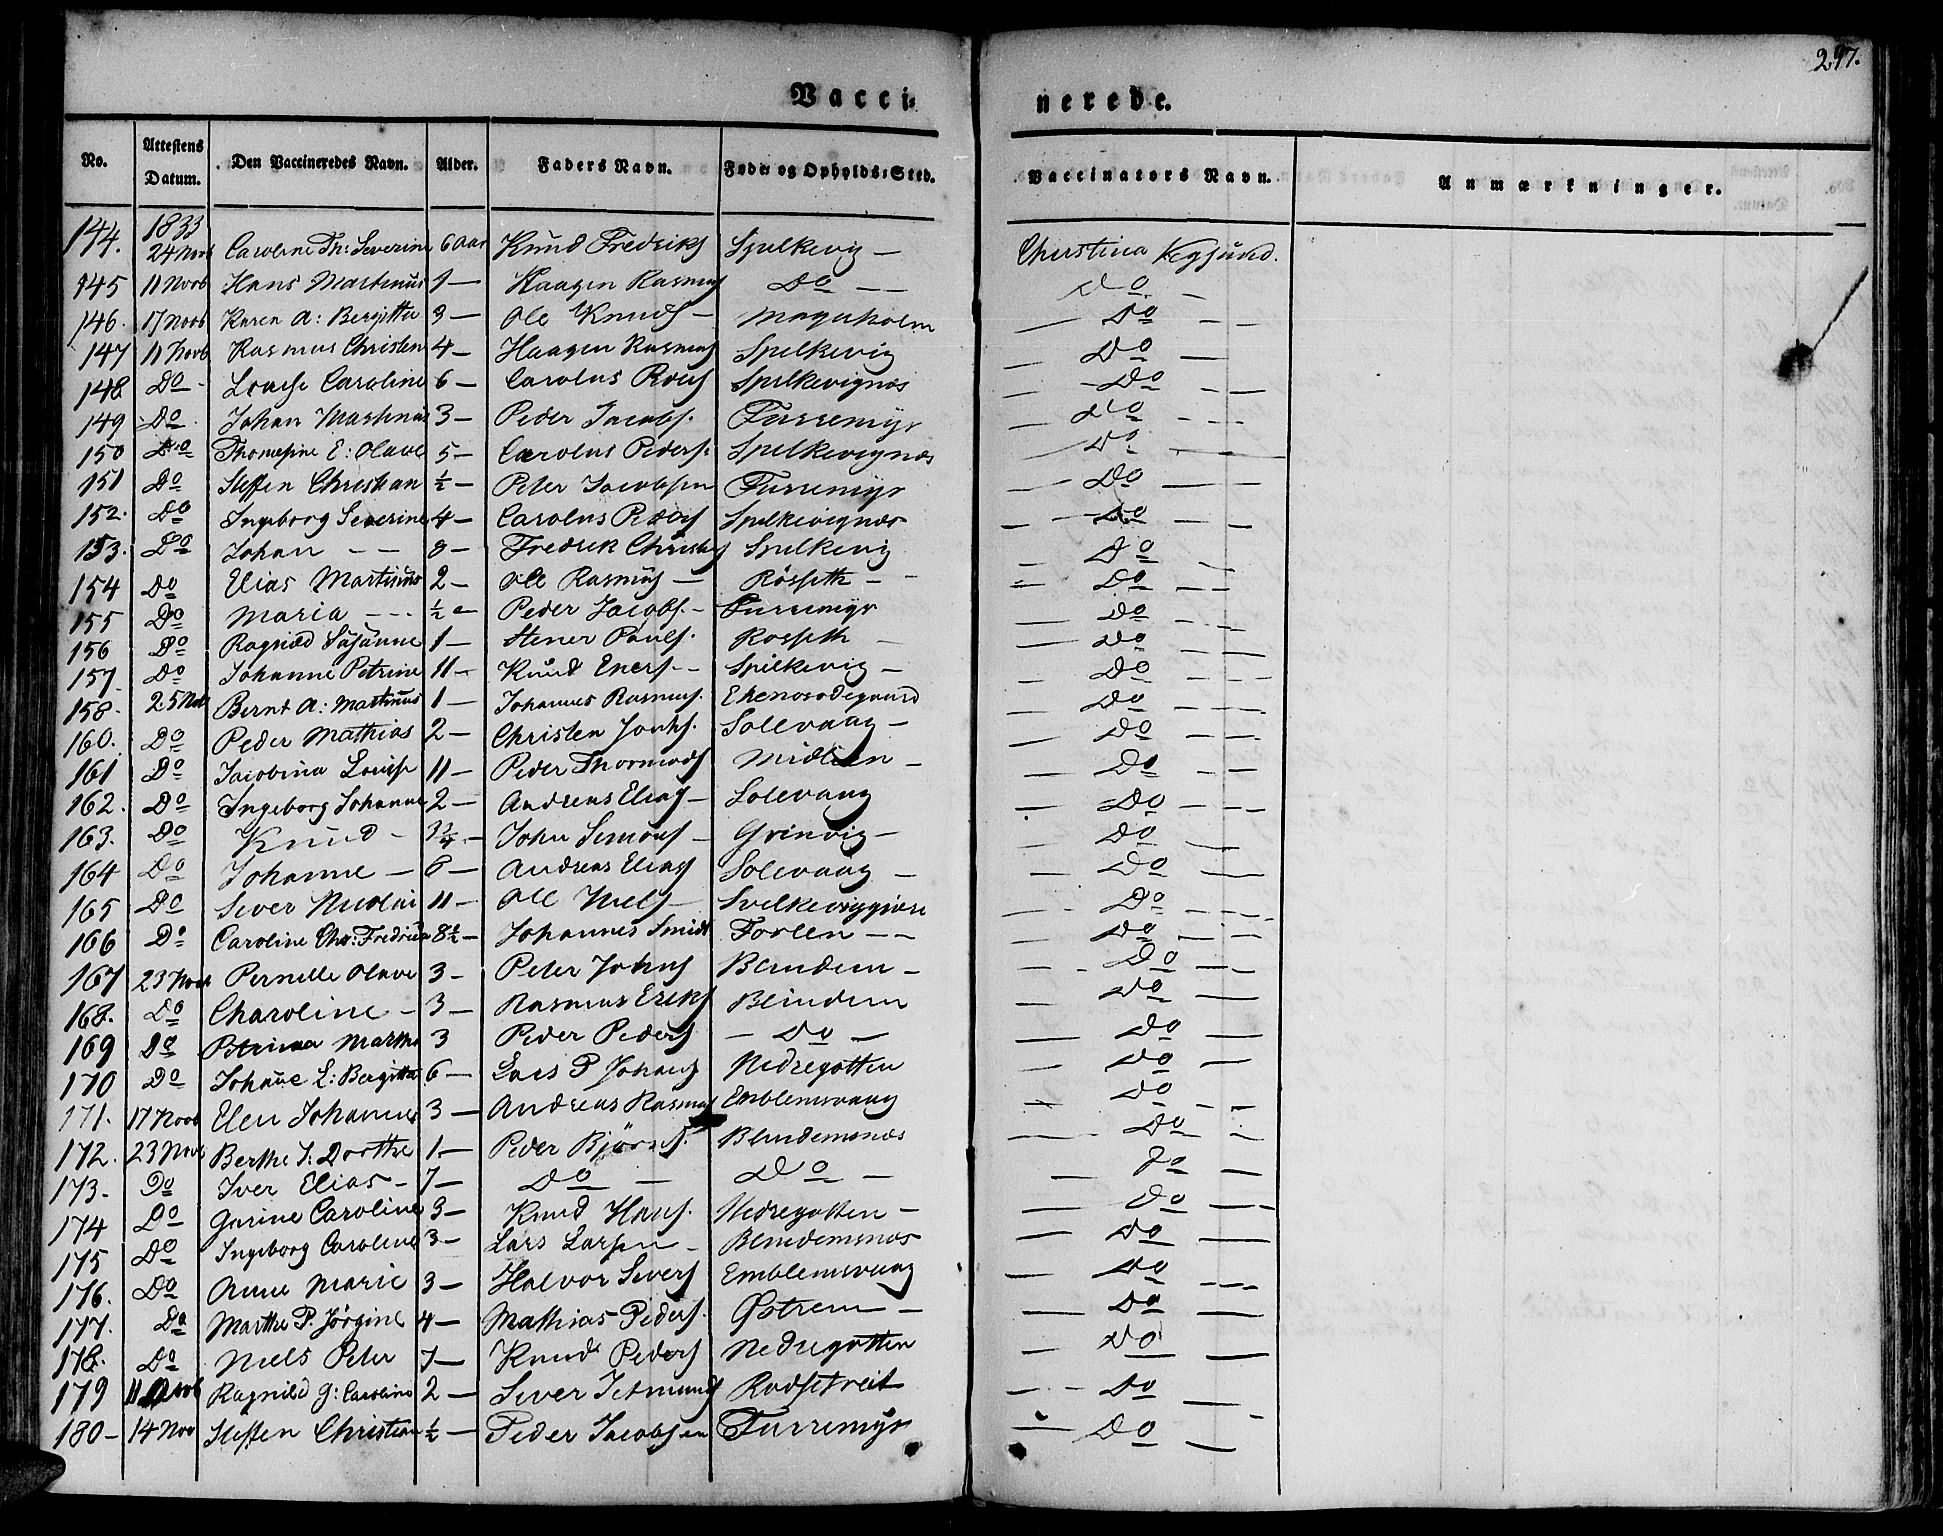 297.
Vacci- nerede.
No. Attestens Datum. Den Vaccineredes Navn. Alder. Faders Navn. Føde- og Opholds-Sted. Vaccinators Navn. Anmærkninger.
1833
144. 24 Novb Caroline Th: Severine 6 aar Knud Fredriks Spilkevig — Christina
145 11 Novb Hans Martinus 9 — Haagen Rasmus Do — Do —
146. 17 Novb Karen A: Bergitte 3 — Ole Knuds — Magerholm — Do — —
147 11 Novb Rasmus Christian 4 — Haagen Rasmus Spilkevig — Do —
148. Do - Lovise Caroline 6 — Carolus Peders Spilkevignæs — Do — —
149 Do. Johan Martinus 3 — Peder Jacobs. Furremyr — Do - — —
150 Do Thomesine E: Olave 5 — Carolus Peders. Spilkevignæs — Do — —
151 Do Steffen Christian ½ — Peter Jacobsen Furremyr — Do — —
152. Do Ingeborg Severine 4 — Carolus Peders Spilkevignæs — Do — —
153. Do Johan — — 8 — Fredrik Christ Spilkevig — Do — —
154 Do Elias Martinus 2 — Ole Rasmus — Rösseth — — Do — —
155 Do Maria - - - ½ — Peder Jacobs. — Furremyr — Do — —
156 Do Ragnild Susanne 1 — Stener Pouls. Rosseth — — Do — —
157. Do Johanne Petrine 11 — Knud Eners — Spilkevig — — Do — — —
158. 25 Nov Bernt A: Martinus 1 — Johannes Rasmus. — Do — —
160. Do Peder Mathias 2 — Christen Solevaag — — Do — —
161 Do Jacobina Lovise 11 — Peder Thormods Midlien — — Do — —
162. Do Ingeborg Johanne 2 — Andreas Elias — Solevaag — Do — —
163. Do Knud — 3¾ — John Simons — Grinvig — — Do — —
164 Do Johanne — 6 — Andreas Elias Solevaag — — Do — —
165 Do Siver Nicolai 11 — Ole Niels — — Do — — —
166 Do Caroline Chr: Fredrica 8½ — Johannes Smidt — — — Do — —
167 23 Novb Pernelle Olave 3 — Peter Johns Blindem — — Do — —
168. Do Charoline — 3 — Rasmus Eriks Blindem — Do —
169 Do Petrina Martha 3 Peder Peders — Do — — Do —
170 Do Johanne L: Bergitta 6 — Lars P Johans Nedregotten — Do —
171. 17 Novb Elen Johanne 3 — Andreas Rasmus Emblemsvaag — Do — —
172. 23 Nov Berthe J: Dorthe 1. — Peder Björns. Blindemsnæs — Do — —
173. Do Iver Elias — 7 — Do — Do — — Do —
174 Do Gurine Caroline 3 — Knud Hans. Nedregotten — — Do — —
175 Do Ingeborg Caroline 3 — Lars Larsen — Blindemsnæs — Do —
176. Do Anne Marie 3 — Halvor Sivers Emblemsvaag — Do — —
177. Do Marthe P. Jørgine 4 — Mathias Peders. Østrem — — Do —
178. Do Niels Peter 7 — Knud Peders Nedregotten — Do —
179 11 Novb Ragnild G: Caroline 2 — Siver — Do —
180 — 14 Nov Steffen Christian ½ — Peder Jacobsen Furremyr — Do —